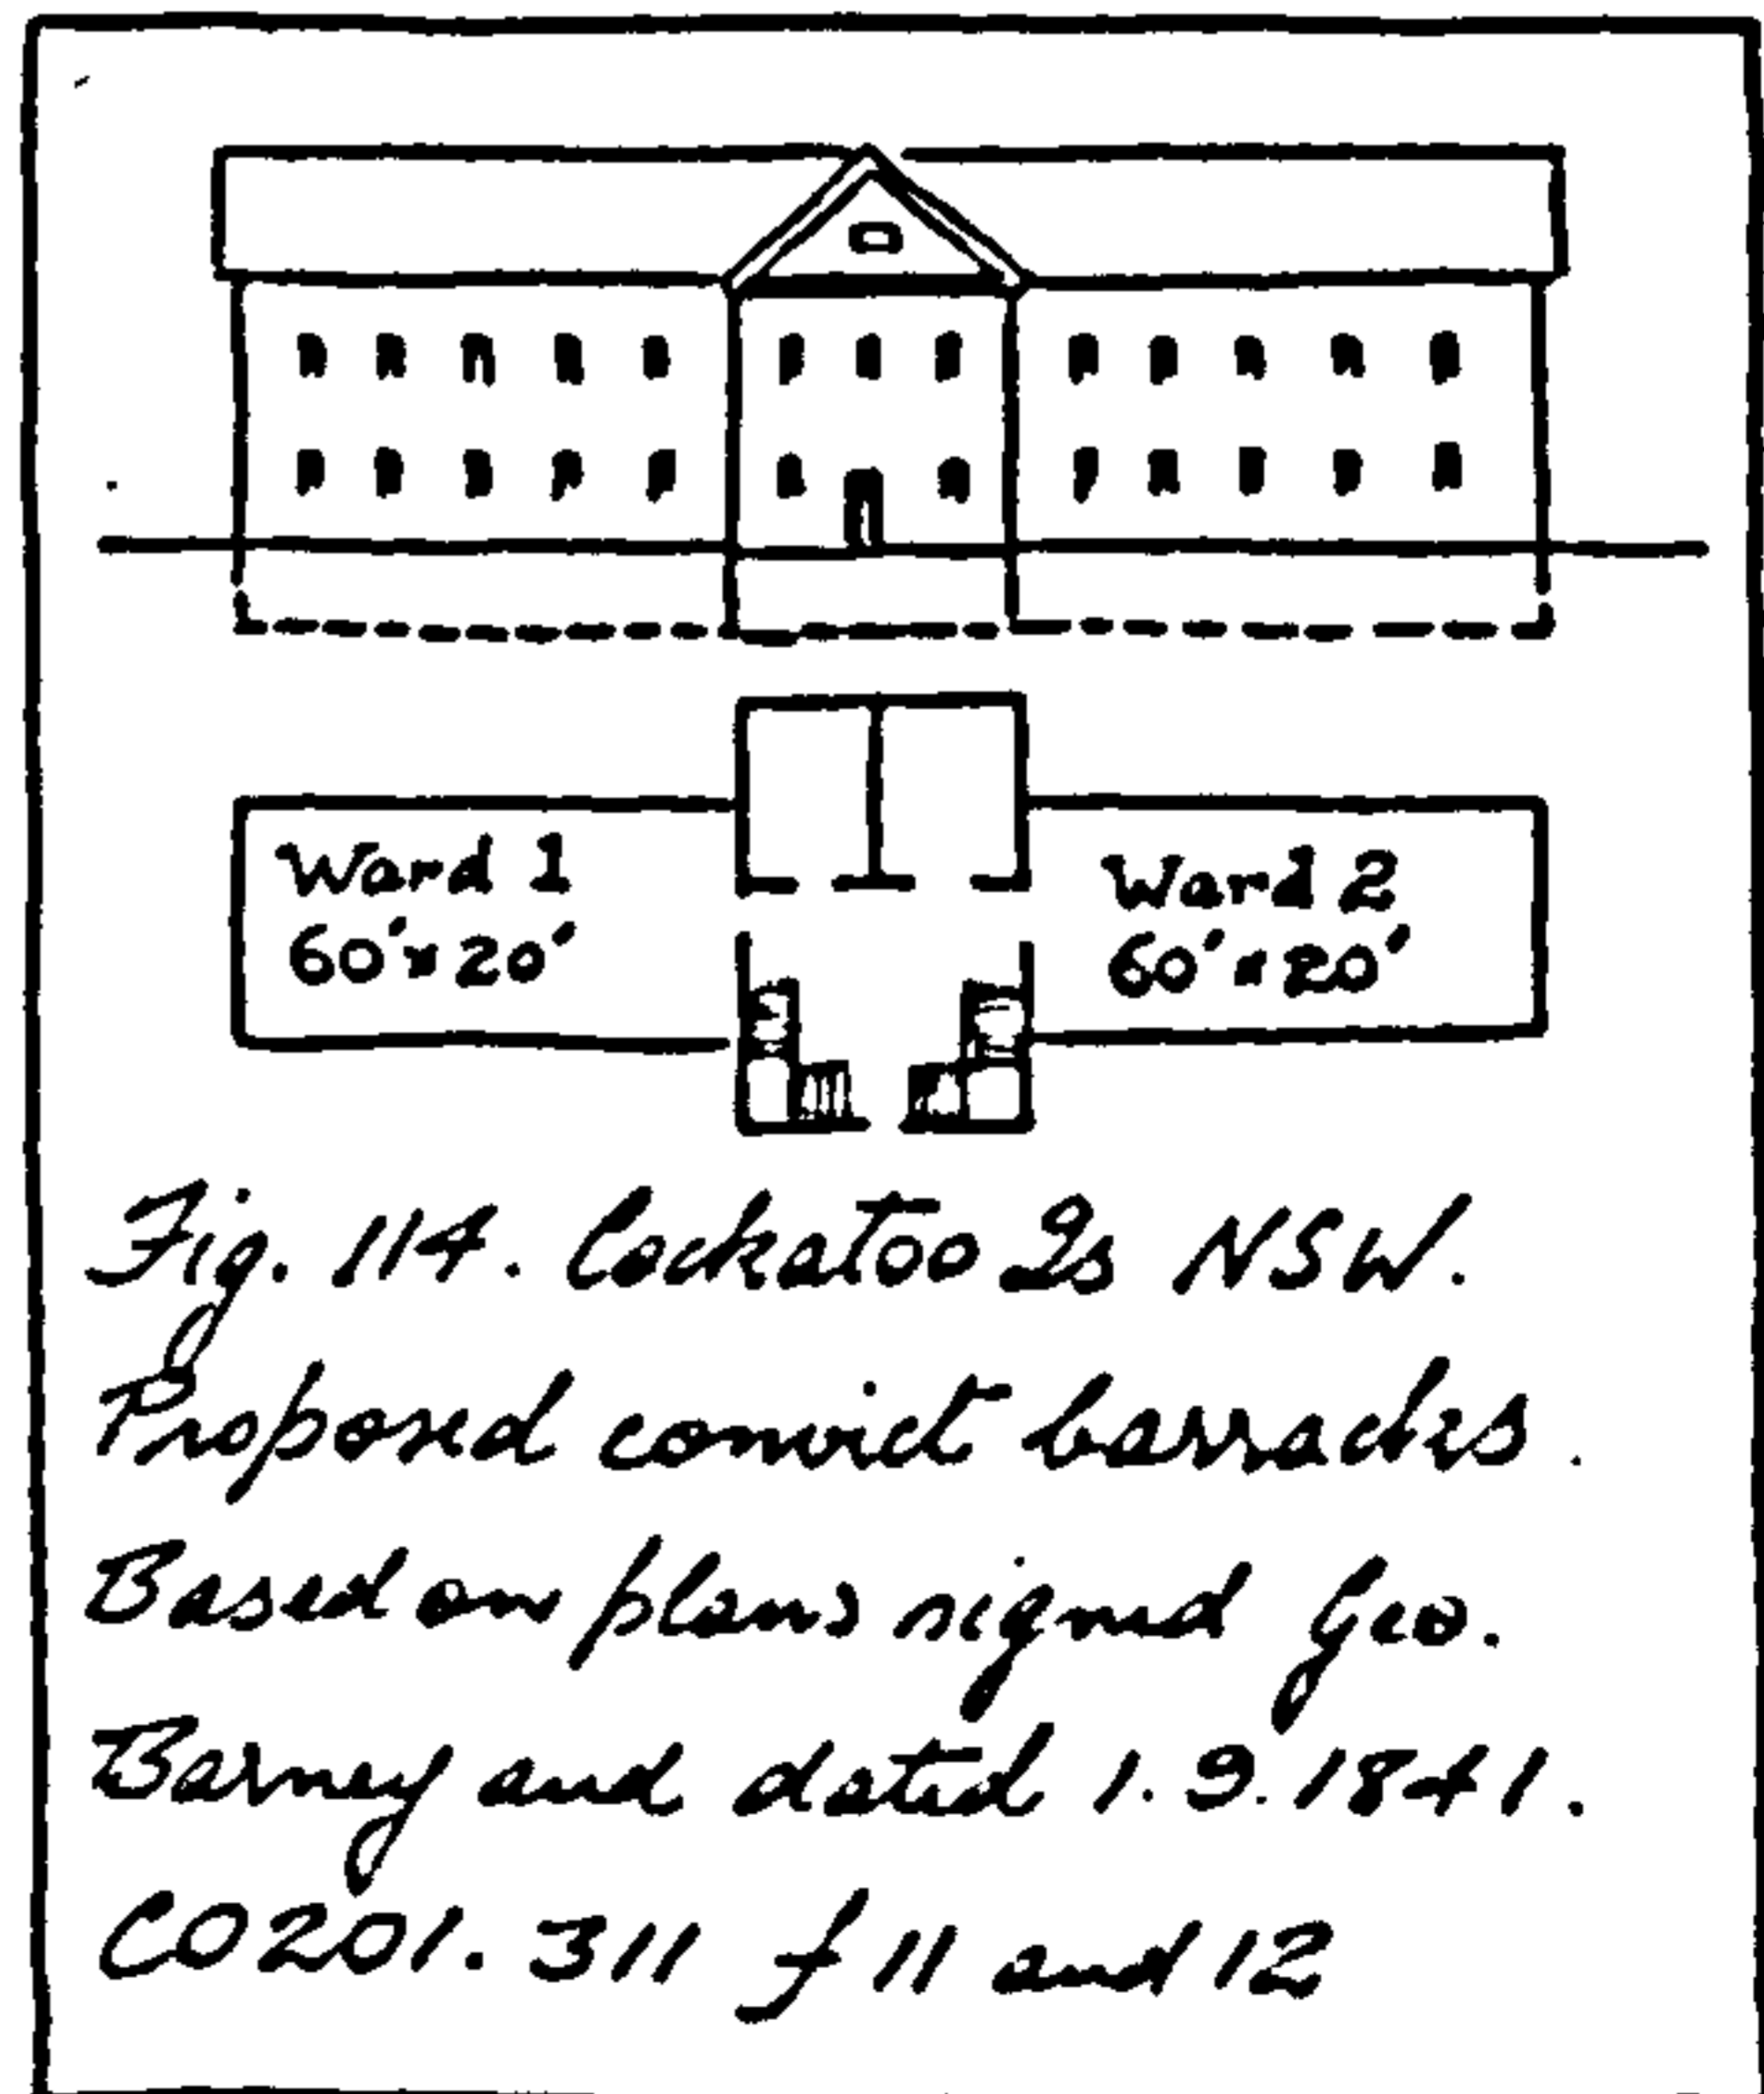 Ward 1
60'x 20'
Ward 2
60'x 20'
Fig. 114. Cockatoo Is NSW.
Proposed convict barracks.
Based on plans signed Geo.
Barney and dated 1.9.1841.
CO201. 311 f 11 and 12